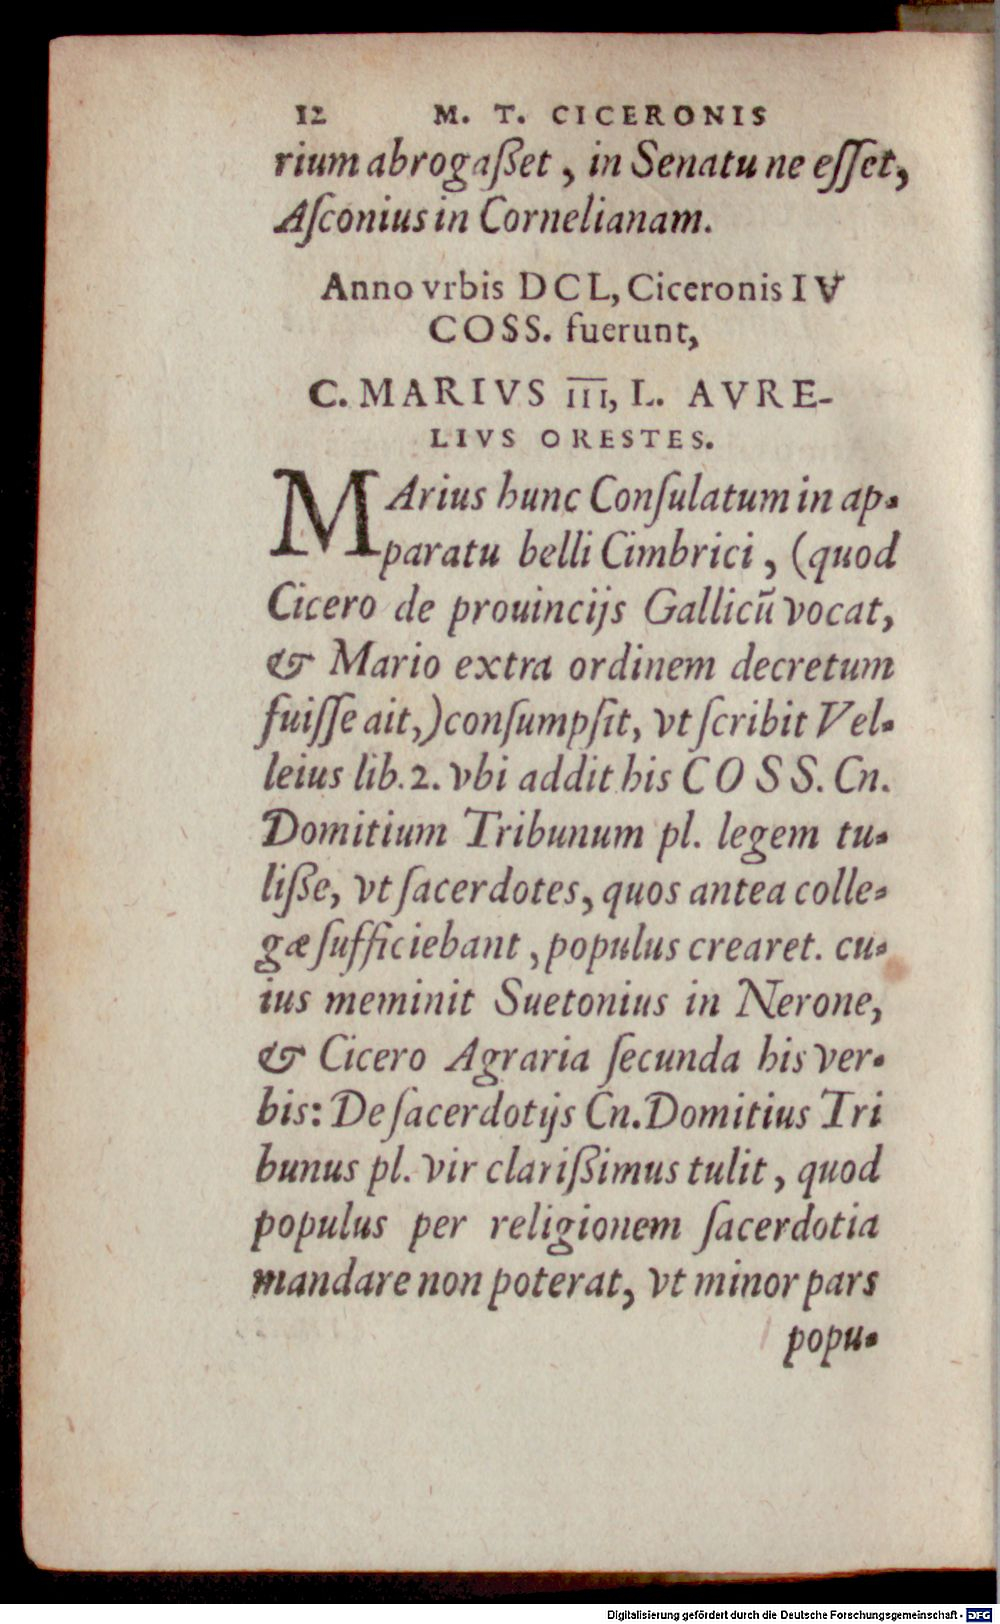 12 M. T. CICERONIS
rium abrogaßet, in Senatu ne eſſet,
Aſconius in Cornelianam.
Anno vrbis DCL, Ciceronis IV
COSS. fuerunt,
C. MARIVS I̅I̅I̅, L. AVRE-
LIVS ORESTES.
MArius hunc Conſulatum in ap-
paratu belli Cimbrici, (quod
Cicero de prouincijs Gallicū vocat,
& Mario extra ordinem decretum
fuiſſe ait,) conſumpſit, vt ſcribit Vel-
leius lib. 2. vbi addit his COSS. Cn.
Domitium Tribunum pl. legem tu-
liße, vt ſacerdotes, quos antea colle-
gæ ſufficiebant, populus crearet. cu-
ius meminit Suetonius in Nerone,
& Cicero Agraria ſecunda his ver-
bis: De ſacerdotijs Cn. Domitius Tri
bunus pl. vir clarißimus tulit, quod
populus per religionem ſacerdotia
mandare non poterat, vt minor pars
popu-
Digitalisierung gefördert durch die Deutsche Forschungsgemeinschaft - DFG